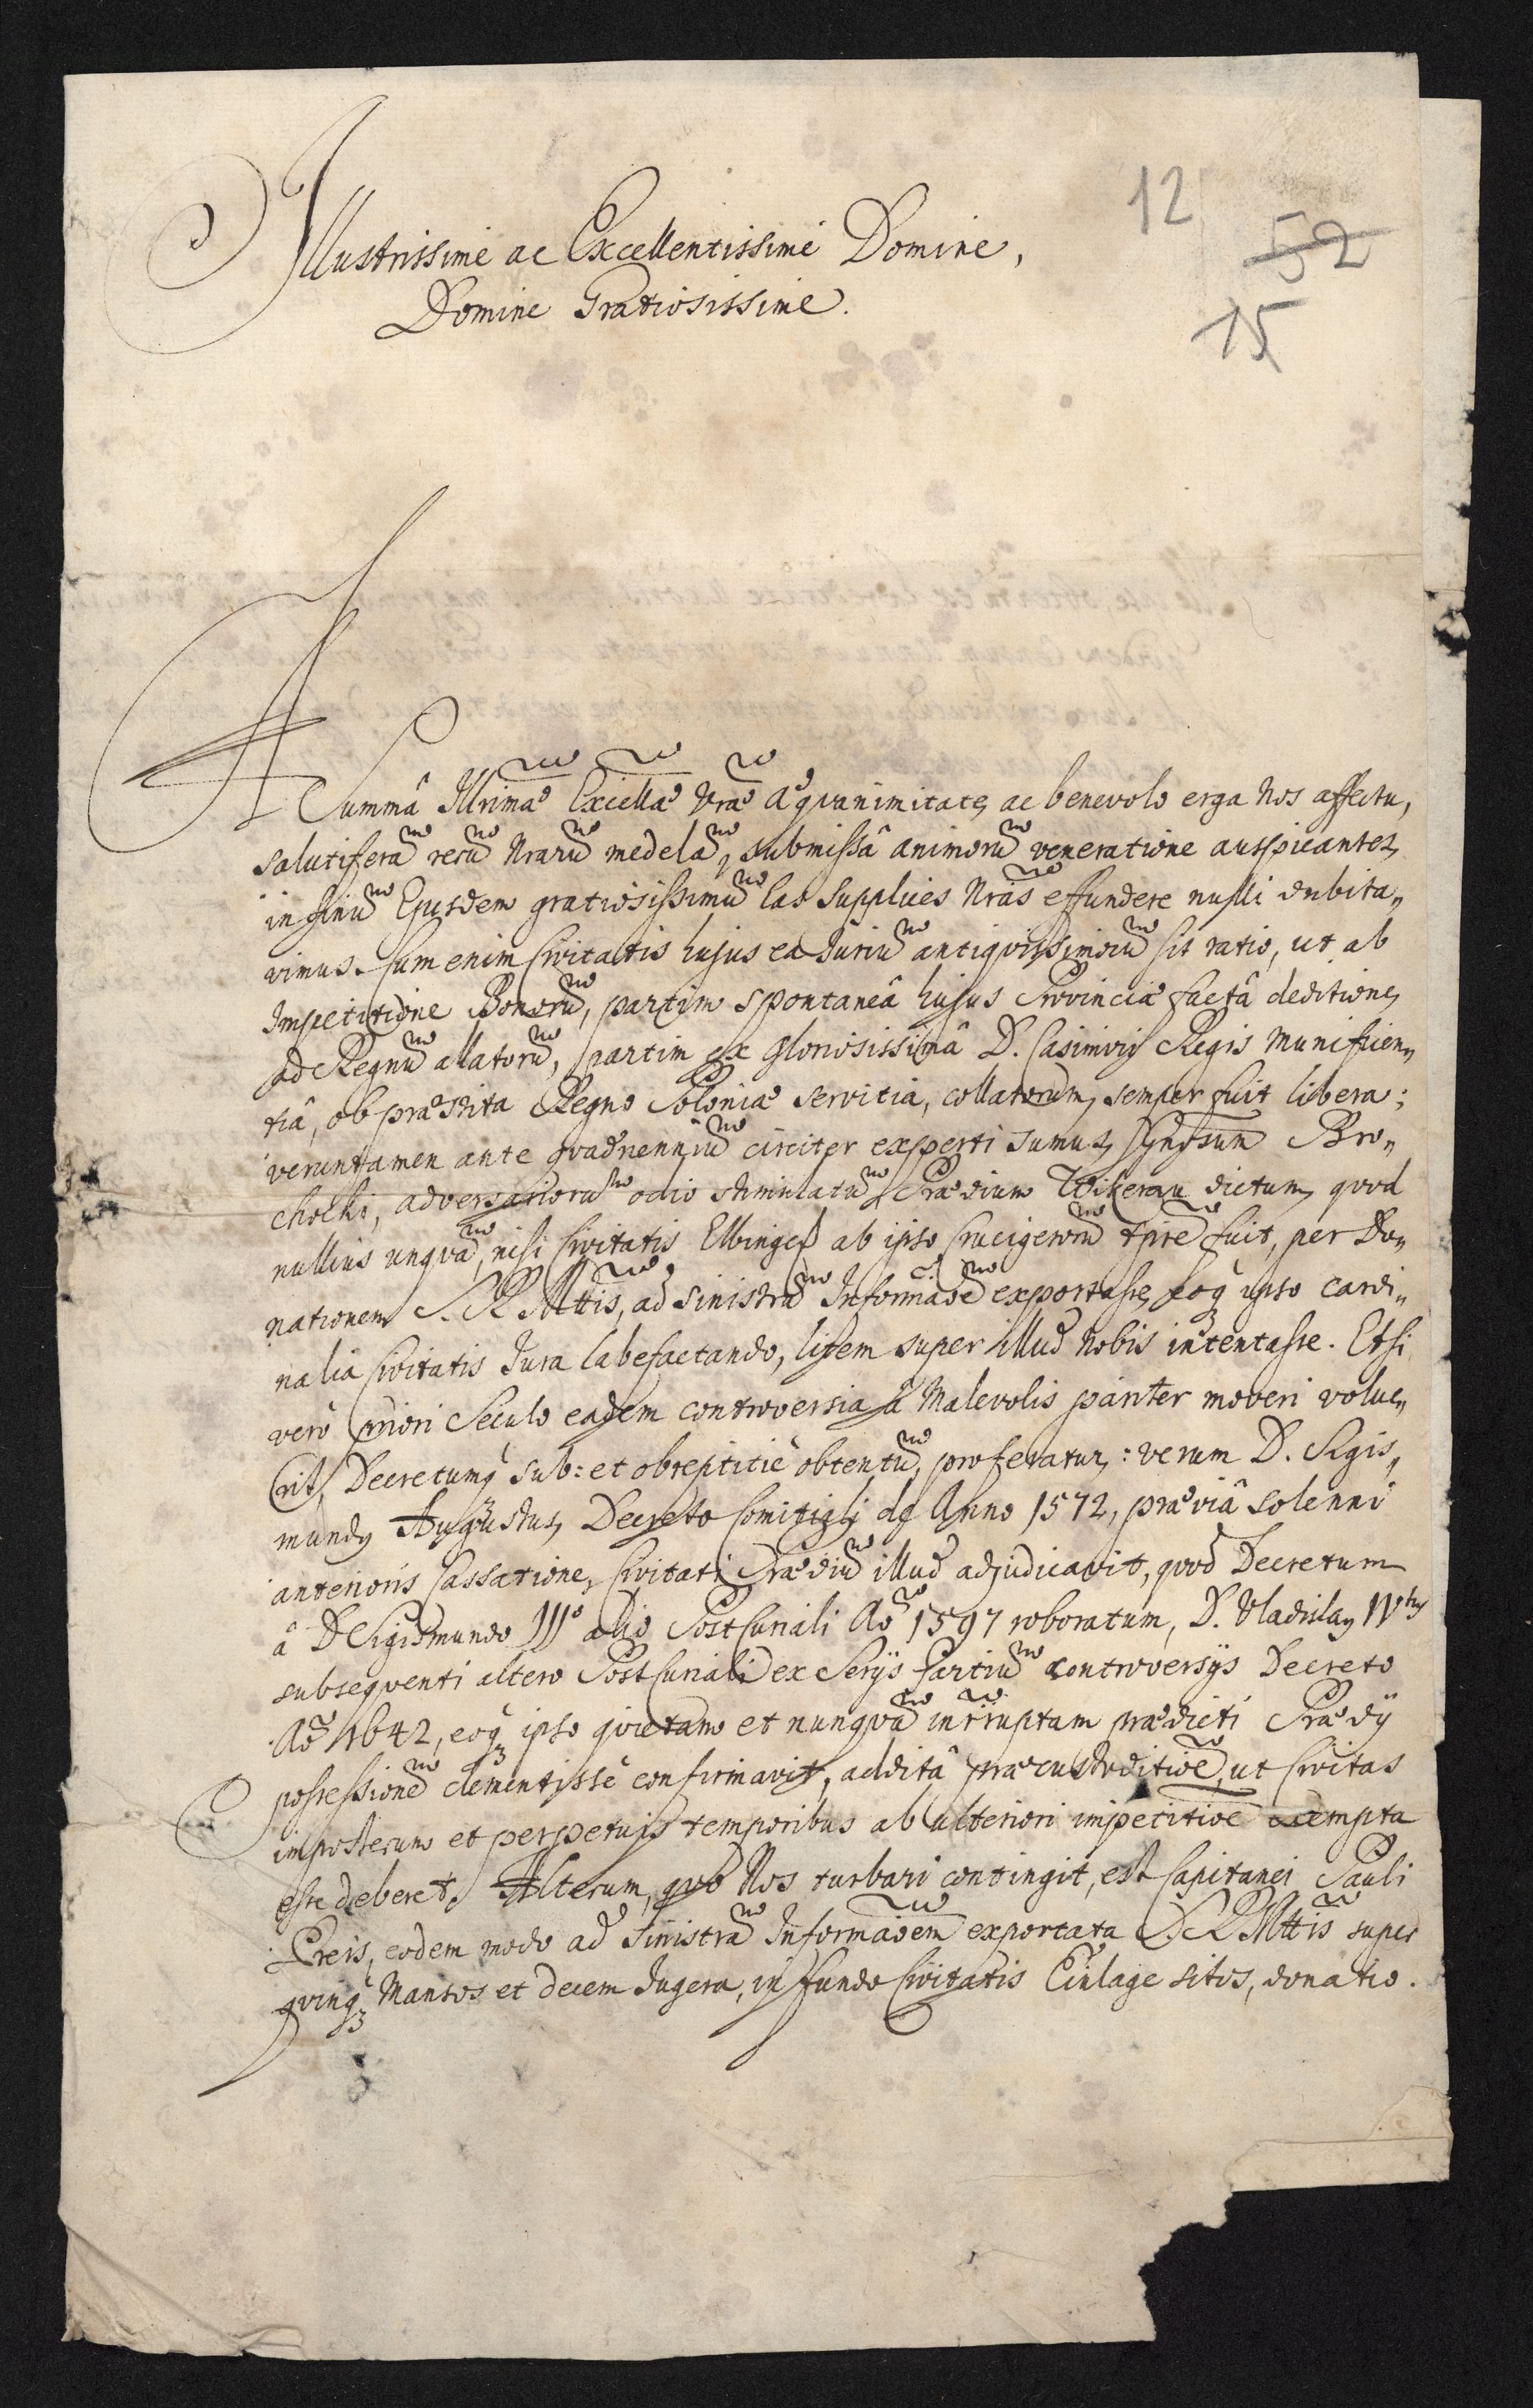 12
52
15
Illustrissime ac Excellentissime Domine,
Domine Gratiosissime.
A Summâ Illrimæ Excellæ Vræ æquanimitate, ac benevolo erga Nos affectu,
salutiferã rerũ Nrarũ medelã, submissâ animorũ veneratione auspicantes,
in sinũ Ejusdem gratiosissimũ has supplices Nrãs effundere nulli dubita„
vimus. Cum enim Civitatis hujus ea Juriũ antiquissimorũ sit ratio, ut ab
Impetitione Bonorũ, partim spontaneâ hujus Provinciæ factâ deditione,
ad Regnũ allatorũ, partim ex gloriosissimâ D. Casimiri Regis munificen„
tiâ, ob præstita Regno Poloniæ servitia, collatorum, semper fuit libera;
veruntamen ante quadrienniũ circiter experti sumus, Gnosum Bro„
chocki, adversariorũ odio stimulatũ, Prædium Wikerau dictum, quod
nullius unquã, nisi Civitatis Elbingeß ab ipso Crucigerorũ tpre fuit, per Do„
nationem S. R. Mttis, ad sinistrã Informãoẽ exportasse, eoq ipso cardi„
nalia Civitatis Jura labefactando, litem super illud Nobis intentasse. Etsi
verò priori Seculo eadem controversia â Malevolis pariter moveri volue„
rit, Decretumq sub: et obreptitiè obtentũ, proferatur: verum D. Sigis„
mundy Augustus, Decreto Comitiali de Anno 1572, præviâ solenni
anterioris Cassatione, Civitati Prædiũ illud adjudicavit, quod Decretum
â D Sigismundo IIIo alio PostCuriali Aõ 1597 roboratum, D. Vladislay IVty
subsequenti altero PostCuriali ex Serijs Partiũ controversijs Decreto
Aõ 1642, eoq ipso quietam et nunquã inrruptam prædicti Prædij
possessionẽ clementissè confirmavit, additâ præcustoditiõe, ut Civitas
imposterum et perpetuis temporibus ab ulteriori impetitiõe exempta
esse deberet. Alterum, quo Nos turbari contingit, est Capitanei Pauli
Preis, eodem modo ad sinistrã Informãoem exportata S. R. Mttis super
quinq Mansos et decem Jugera, in fundo Civitatis Einlage sitos, donatio.